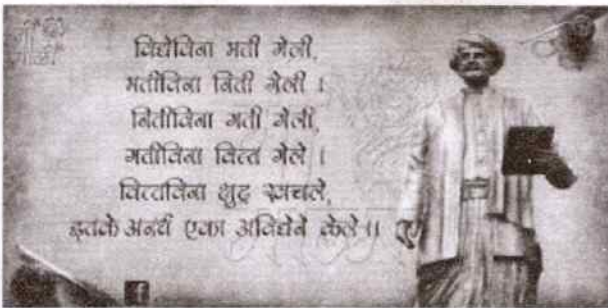 विद्येविना मती गेली,
मतीविना निती गेली ।
नितीविना गती गेली,
गतीविना वित्त गेले ।
वित्तविना शुद्र खचले,
इतके अनर्थ एका अविद्येने केले ॥
f